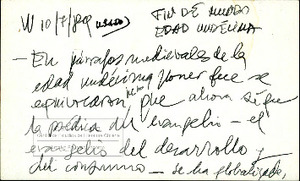 W 10/7/89
FIN DE MUNDO
EDAD UNDÉCIMA
— En párrafos medievales de la
edad undécima poner que se
equivocaron, que ahora sí que
la prédica del evangelio – el
evangelio del desarrollo y
del consumo – se ha globalizado,